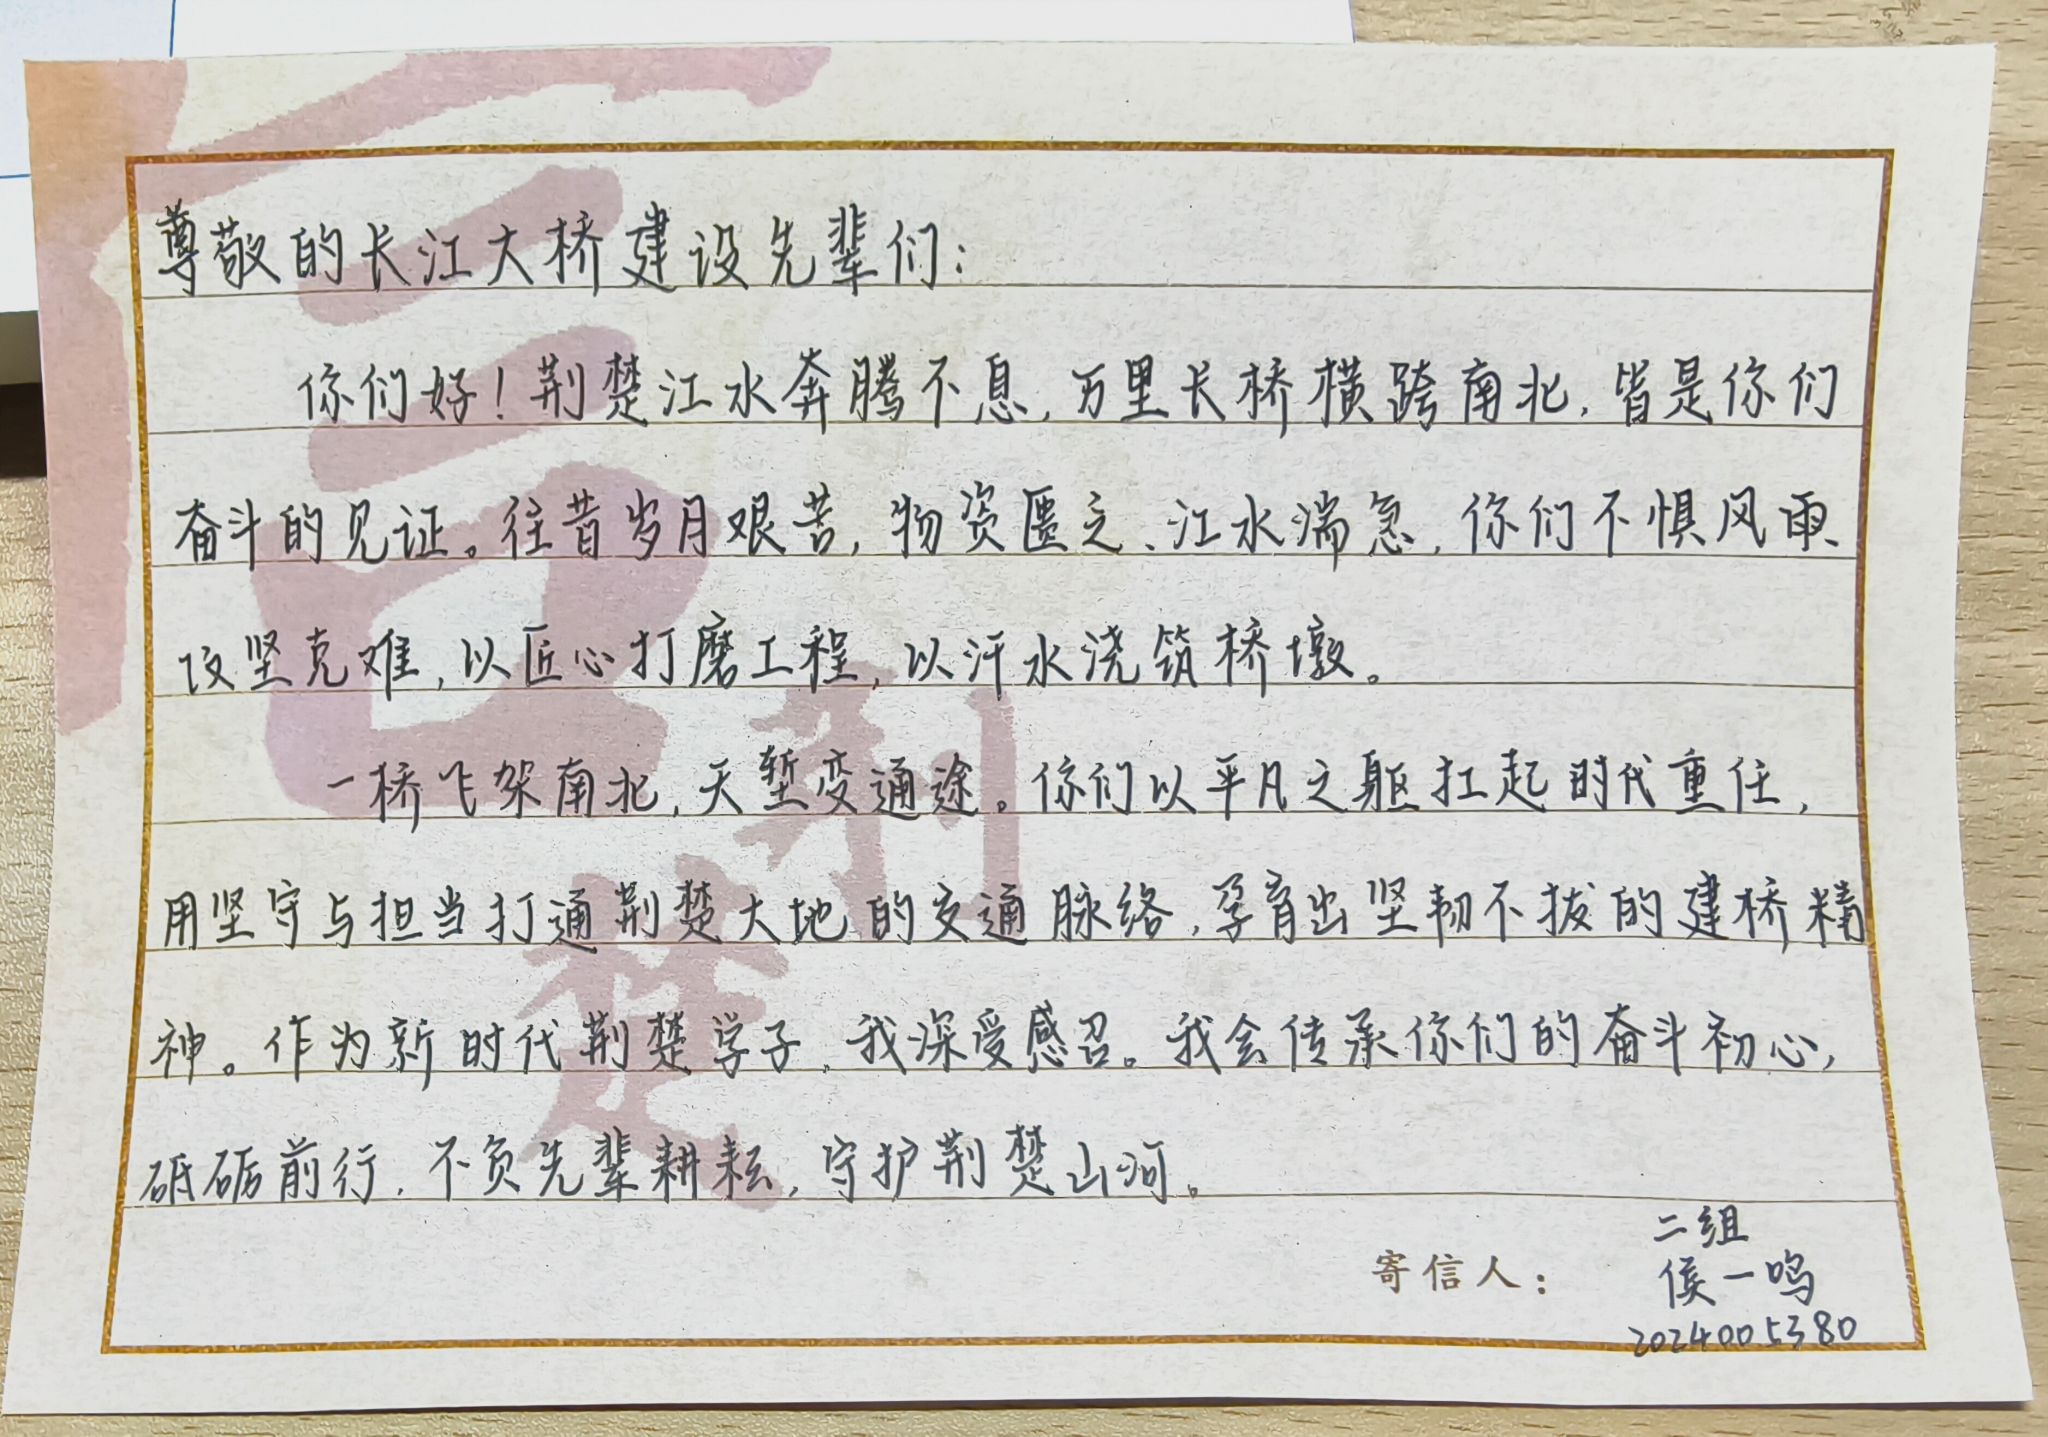 尊敬的长江大桥建设先辈们：
你们好！荆楚江水奔腾不息，万里长桥横跨南北，皆是你们
奋斗的见证。往昔岁月艰苦，物资匮乏、江水湍急，你们不惧风雨、
攻坚克难，以匠心打磨工程，以汗水浇筑桥墩。
一桥飞架南北，天堑变通途。你们以平凡之躯扛起时代重任，
用坚守与担当打通荆楚大地的交通脉络，孕育出坚韧不拔的建桥精
神。作为新时代荆楚学子，我深受感召。我会传承你们的奋斗初心，
砥砺前行，不负先辈耕耘，守护荆楚山河。
二组
寄信人：侯一鸣
2024005380
信
荆
楚